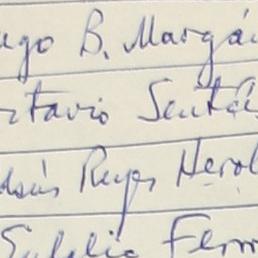 ugo B. Margái
ctavio Sentíes
esús Reyes Herol
Eulalio Ferr